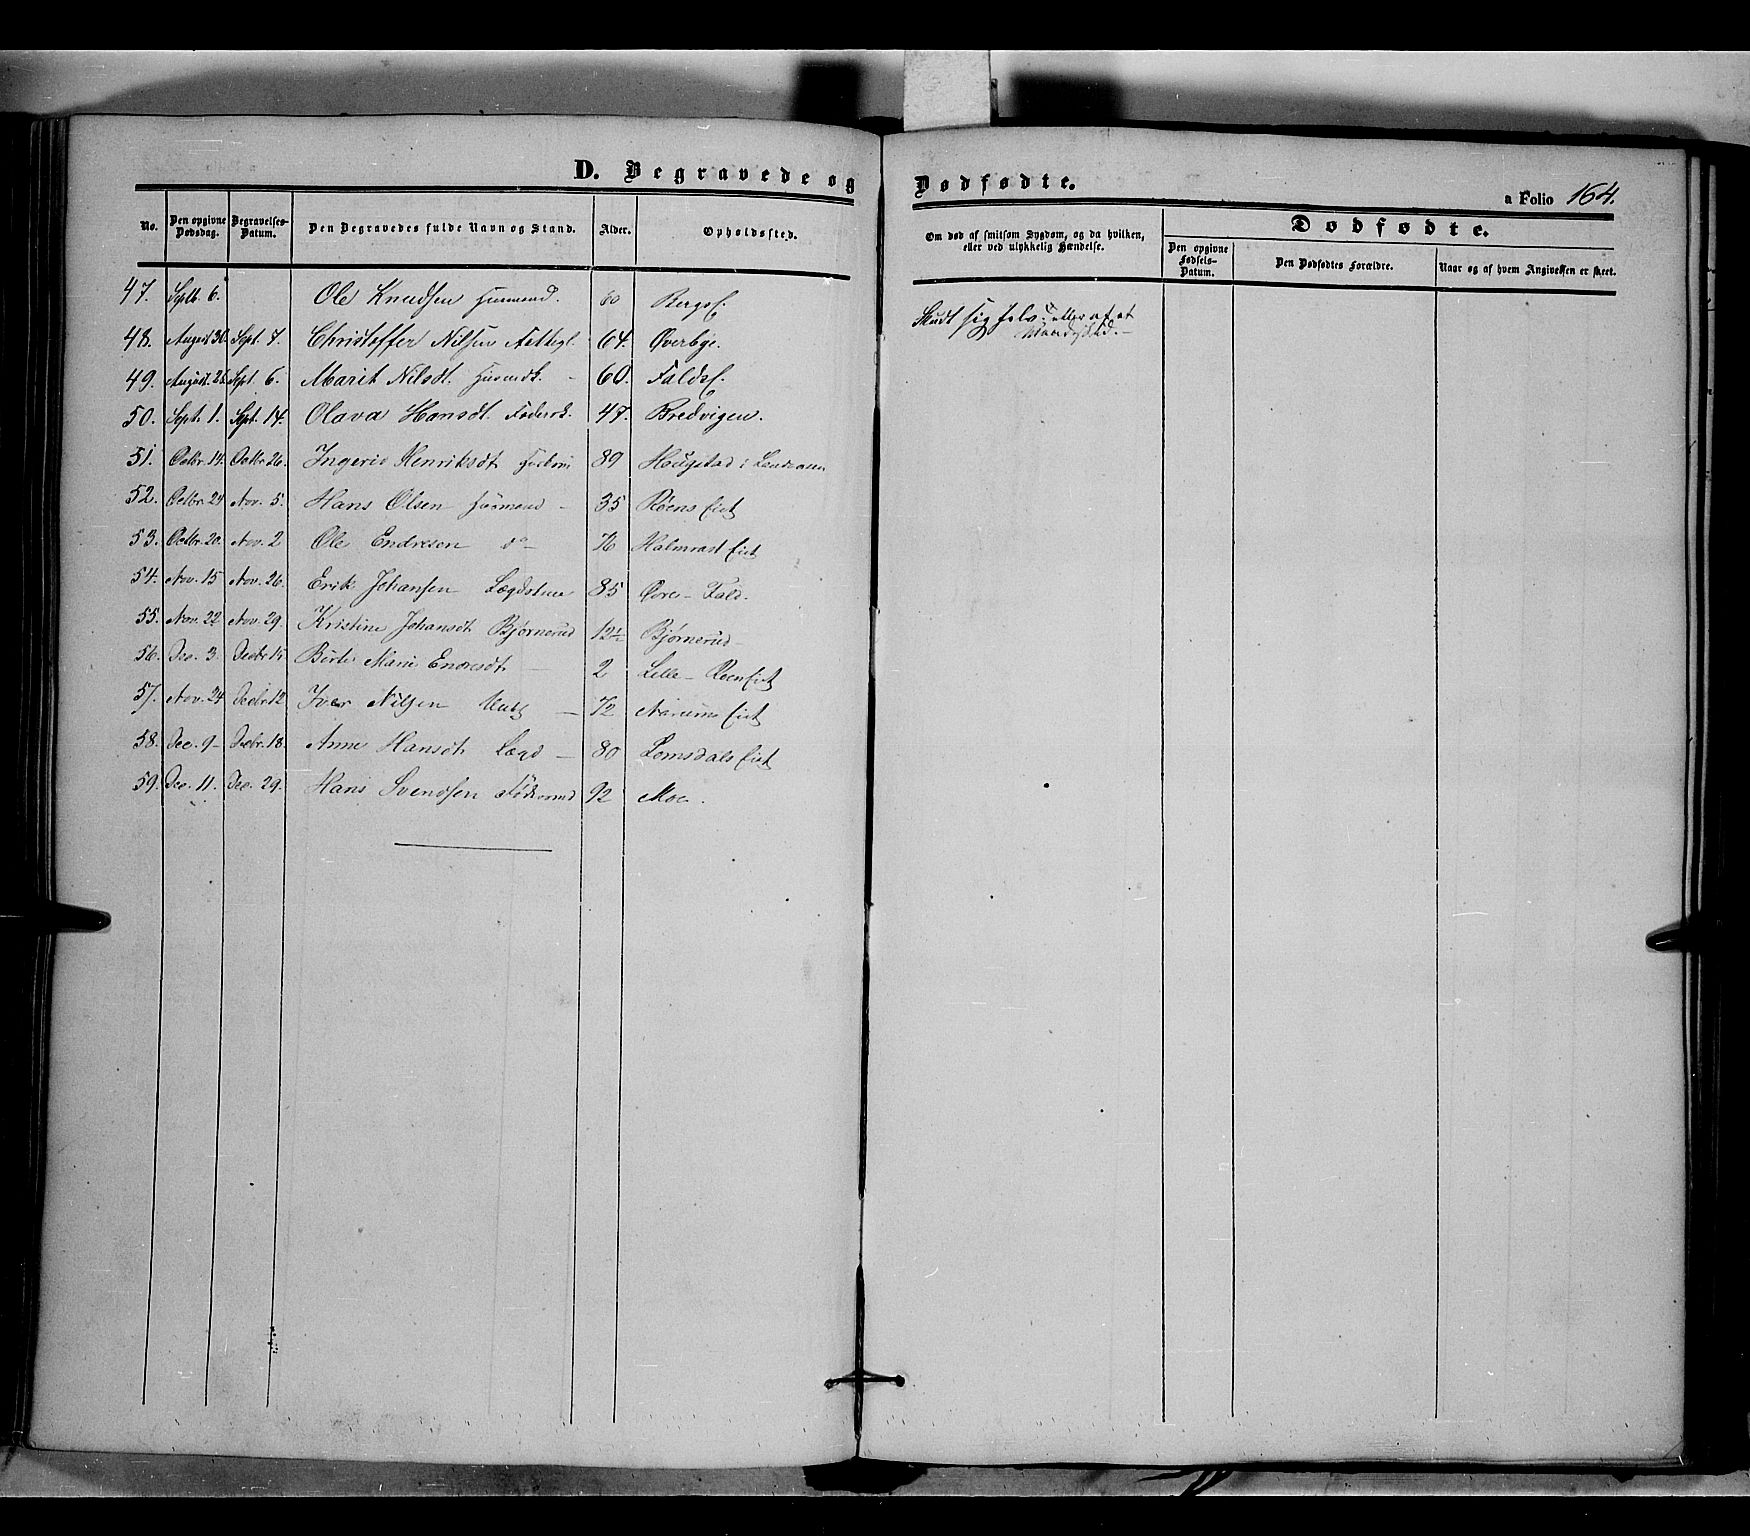 D. Begravede og Dødfødte.
a Folio 164.
No. Den opgivne Dødsdag. Begravelses-Datum. Den Begravedes fulde Navn og Stand. Alder. Opholdssted. Om død af smitsom Sygdom, og da hvilken, eller ved ulykkelig Hændelse. Dødfødte. Den opgivne Fødsels-Datum. Den Dødfødtes Forældre. Naar og af hvem Angivelsen er skeet.
47. Septb. 6. Ole Knudsen Husmand. 80 Bergsf.
48. August 30. Sept. 7. Christoffer Nilsen 64. Øverbye. Skudt sig selv
49. August. 26 Sept. 6. Marit Nilsdt. 60. Faldsf.
50. Sept. 1. Sept. 14. Olava Hansdt. 47. Bredvigen.
51. Octbr. 14. Octbr 26. Ingerid Henriksdt 89 Haugstad i
52. Octbr 24 Nov. 5. Hans Olsen Husmand 35 Røens Eiet
53. Octbr. 20. Nov. 2 Ole Endresen do 76 Halmrast Eiet
54. Nov. 15 Nov. 26. Erik Johansen 85 Fald.
55. Nov. 22 Nov. 29. Kristine Johansdt Bjørnerud 12½ Bjørnerud
56. Dec. 3. Decbr 15 Berte Marie Endresdt 2 Lille-Roen Eiet
57. Nov. 24 Decbr 12 Iver Nilsen 72 Narums Eiet
58. Dec. 9 Decbr. 18. Anne Hansdt Lægd 80 Lomsdals Eiet
59. Dec. 11. Dec. 29. Hans Svendsen 92 Moe.